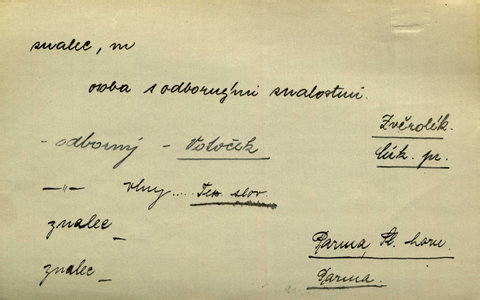 znalec, m
osoba s odbornými znalostmi.
Zvěrolék.
- odborný - Votoček
lék. pr.
—„— vlny.... Tex. slov.
znalec_ Parma, Sl. horn.
znalec_ Parma.